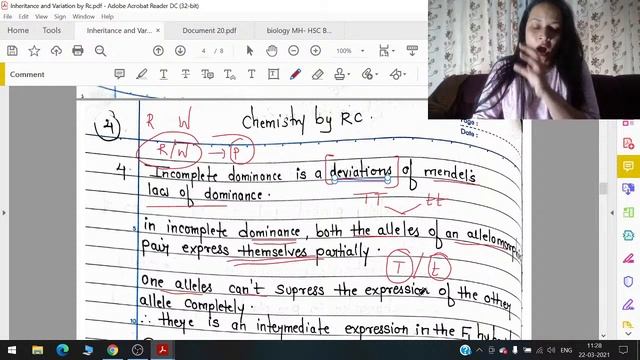 Inheritance and Variation by Rc.pdf - Adobe Acrobat Reader DC (32-bit)
File Edit View Sign Window Help
Home Tools Inheritance and Var... × Document 20.pdf biology MH- HSC B...
4 / 8 100%
Comment
4 R W Chemistry by RC.
Page :
Date :
R/W → P
4. Incomplete dominance is a [deviations] of mendel's
law of dominance.
TT tt
in incomplete dominance, both the alleles of an allelomorphic
pair express themselves partially.
T / t
One alleles can't supress the expression of the other
allele completely.
∴ there is an intermediate expression in the F hybrid
11:28
ENG
22-03-2021